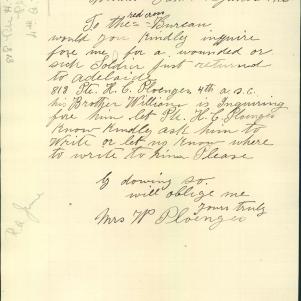 red cross
To the Bureau
would you kindly inquire
fore me for a wounded or
sick Soldier just returned
to adelaide
818 Pte. H. C. Ploenges 4th a.s.c.
his Brother William is Inquiring
fore him let Pte. H. C. Ploenges
know kindley ask him to
write or let us know where
to write to him Please
By dowing so.
will oblige me
yours truly
Mrs W Ploenges